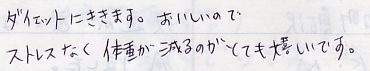 ダイエットにききます。おいしいので
ストレスなく体重が減るのがとても嬉しいです。